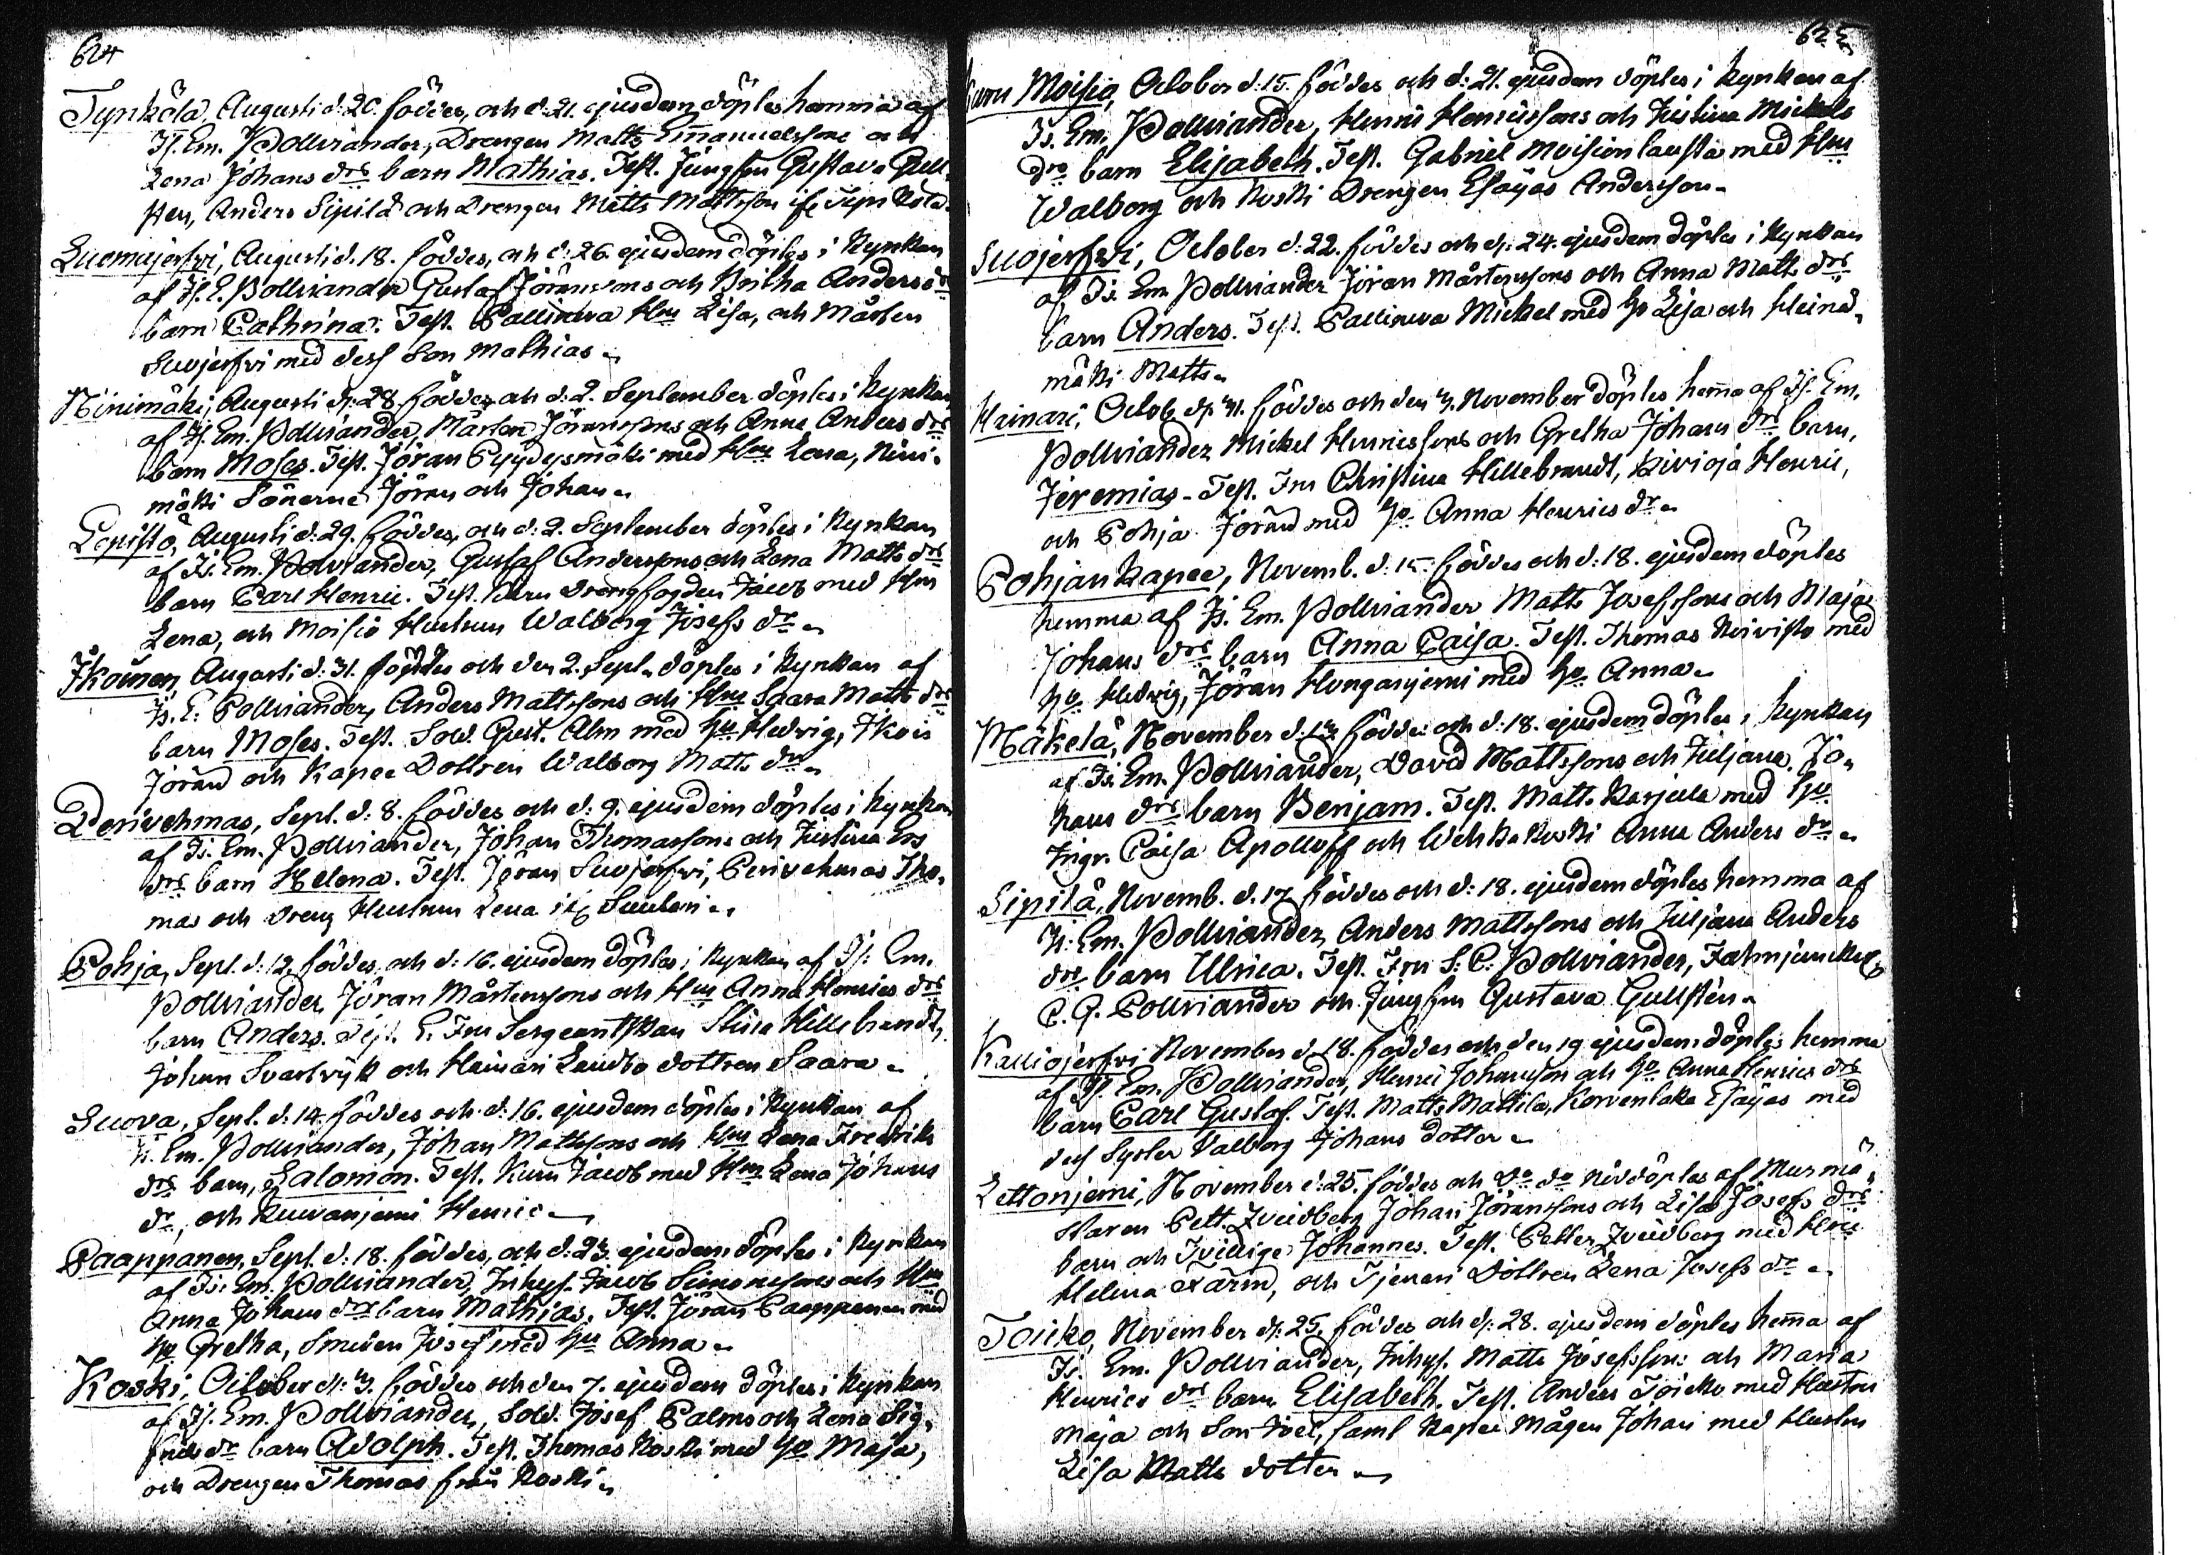 624
Tynkölä, Augusti d: 20. föddes, och d: 21. ejusdem döptes hemma af
Is. Em. Pollviander, Drengen Matts Emanuelssons och
Lena Johans drs barn Mathias. Test. Jungfru Gustava Gull
sten, Anders Sipilä och Drengen Matts Mattsson
Luomajerfvi, Augusti d. 18. föddes, och d: 26. ejusdem döptes i Kyrkan
af Is. E. Pollviander Gustaf Jöranssons och Britha Anders d:
barn Cathrina. Test. Callineva Hru Lisa, och Mårten
Suojerfvi med dess Son Mathias.
Ninimäki, Augusti d: 28. föddes och d: 2. September döptes i Kyrkan
af Is. Em. Pollviander, Mårten Jöranssons och Anna Anders drs
barn Moses. Test. Jöran Pyydysmäki med Hru Lena, Nini-
mäki Sönerne Jöran och Johan.
Lepistö, Augusti d: 29. föddes, och d: 2. September döptes i Kyrkan
af Is. Em. Pollviander, Gustaf Anderssons och Lena Matts drs
barn Carl Henric. Test. drengfogden Jacob med Hru
Lena, och Moisio Hustrun Walborg Josefs dr.
Ikoinen, Augusti d: 31. föddes och den 2. Sept. döptes i Kyrkan af
Is. E. Pollviander, Anders Mattssons och Hru Saara Matts drs
barn Moses. Test. Sold. Gust. Alm med Hu Hedvig, Ikois
Jöran och Kapee Dottren Walborg Matts dr.
Perivehmas, Sept. d: 8. föddes och d: 9. ejusdem döptes i Kyrkan
af Is. Em. Pollviander, Johan Thomassons och Justina Ers
drs barn Helena. Test. Jöran Suojerfvi, Perivehmas Tho-
mas och dreng Hustrun Lena
Pohja, Sept. d: 12. föddes och d: 16. ejusdem döptes i Kyrkan af Is. Em.
Pollviander, Jöran Mårtenssons och Hru Anna Henrics drs
barn Anders. Test. Fru Sergeantskan Stina Hillebrandt,
Johan Svartvijk och Hainari Landbo dottren Saara.
Luova, Sept. d: 14. föddes och d: 16. ejusdem döptes i Kyrkan af
Is. Em. Pollviander, Johan Mattssons och Hru Lena Fredrik
drs barn, Salomon. Test. Kuru Jacob med Hru Lena Johans
dr, och Kuivanjemi Henric.
Paappanen, Sept. d: 18. föddes, och d: 23. ejusdem döptes i Kyrkan
af Is. Em. Pollviander, Inhys. Jacob Simonssons och Hru
Anna Johans drs barn Mathias. Test. Jöran Paappanen med
Hu Gretha, Smeden Josef med Hu Anna.
Koski, October d: 3. föddes och den 7. ejusdem döptes i Kyrkan
af Is. Em. Pollviander, Sold. Josef Palms och Lena Sig-
frids dr barn Adolph. Test. Thomas Koski med Hu Maja,
och Drengen Thomas från Koski.
625
Moisio, October d: 15. föddes och d: 21. ejusdem döptes i Kyrkan af
Is. Em. Pollviander, Henric Henricssons och Justina Mickels
drs barn Elisabeth. Test. Gabriel Moisionlausta med Hru
Walborg och Koski Drengen Esaijas Andersson.
Suojerfvi, October d: 22. föddes och d: 24. ejusdem döptes i Kyrkan
af Is. Em. Pollviander Jöran Mårtenssons och Anna Matts drs
barn Anders. Test. Callineva Mickel med Hu Lisa och Heinä-
mäki Matts.
Hainari, Octob. d: 31. föddes och den 3. November döptes hem̄a af Is. Em.
Pollviander Mickel Henricssons och Gretha Johans drs barn,
Jeremias. Test. Fru Christina Hillebrandt, Kivioja Henric,
och Pohja Jöran med Hu Anna Henrics dr.
Pohjankapee, Novemb. d: 15. föddes och d: 18. ejusdem döptes
hemma af Is. Em. Pollviander Matts Josefssons och Maja
Johans drs barn Anna Caisa. Test. Thomas Koivisto med
Hu Hedvig, Jöran Hongasjemi med Hu Anna.
Mäkelä, November d: 13. föddes och d: 18. ejusdem döptes i Kyrkan
af Is. Em. Pollviander, David Mattssons och Juljana Jo-
hans drs barn Benjam. Test. Matts Karjula med Hu
Caisa Apolloff och Anna Anders dr.
Sipilä, Novemb. d. 17. föddes och d: 18. ejusdem döptes hemma af
Is. Em. Pollviander, Anders Mattssons och Juljana Anders
drs barn Ulrica. Test. Fru S. C. Pollviander, Fahnjunckar
C. G. Pollviander och Jungfru Gustava Gullstén.
Kalliojerfvi November d. 18. föddes och den 19 ejusdem döptes hemma
af Is. Em. Pollviander, Henric Johansson och Hu Anna Henrics drs
barn Carl Gustaf. Test. Matts Mattila, Korvenlaka Esaijas med
dess Syster Valborg Johans dotter.
Lettonjemi, November d: 25. föddes och do do nöddöptes af Murmä-
staren Pett. Zveidberg Johan Jöranssons och Lisa Josefs drs
barn och Tvillige Johannes. Test. Petter Zveidberg med Hru
Helena Färm, och Tjeneri Dottren Lena Josefs dr.
Toicko, November d: 25. föddes och d: 28. ejusdem döptes hem̄a af
Is. Em. Pollviander, Inhys. Matts Josefssons och Maria
Henrics drs barn Elisabeth. Test. Anders Toicko med Hustru
Maja och Son Joel, samt Kapee Mågen Johan med Hustru
Lisa Matts dotter.